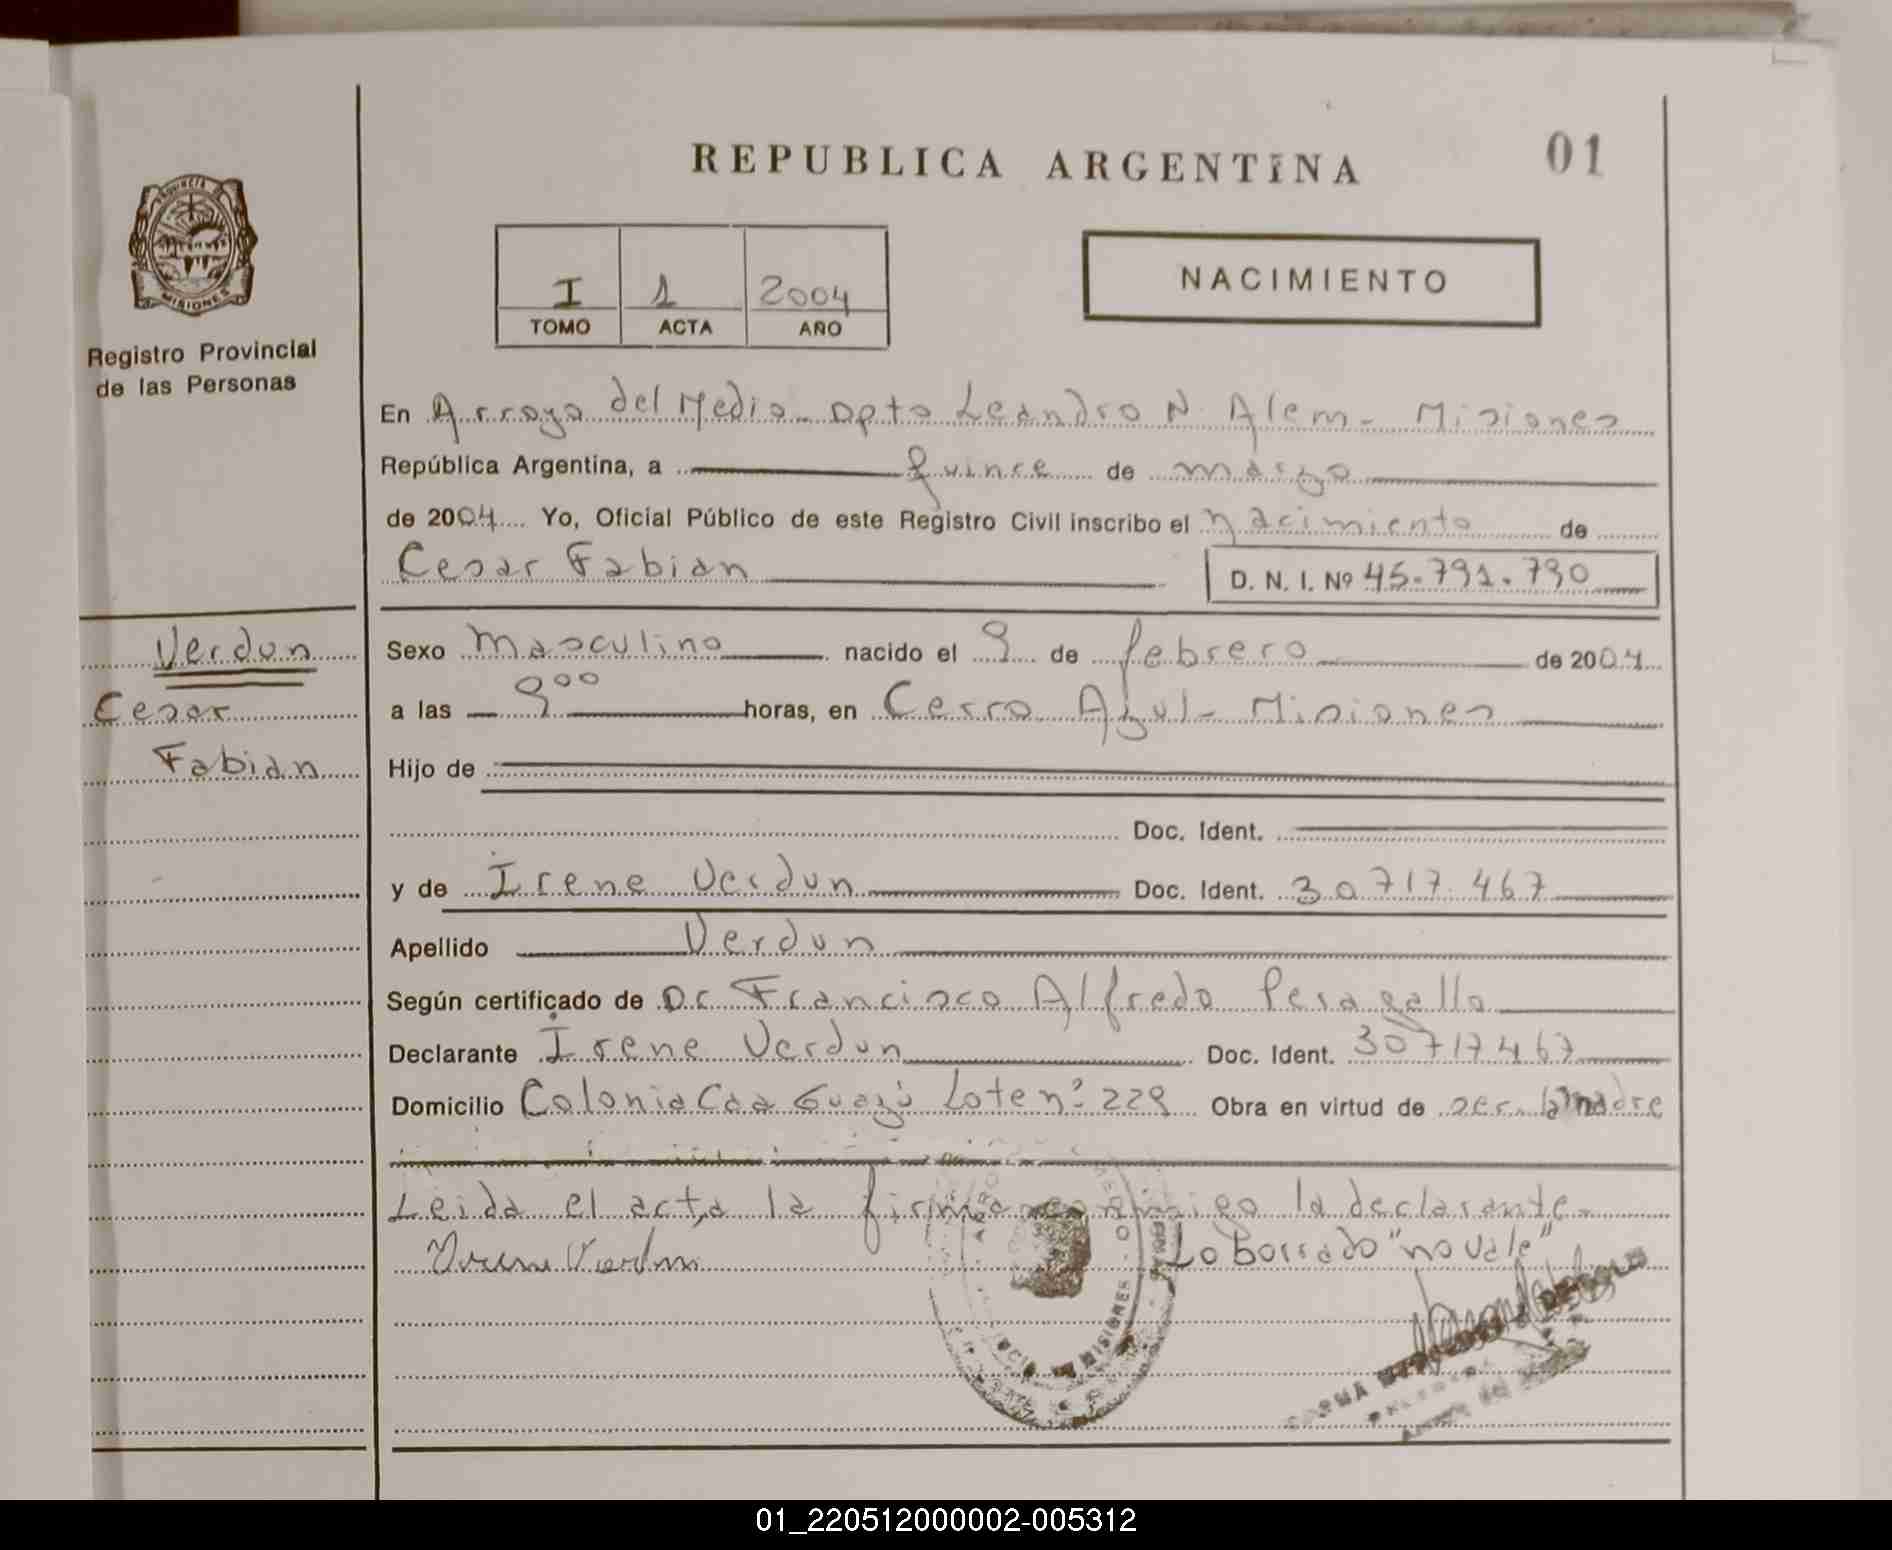 REPUBLICA ARGENTINA
01
PROVINCIA D MISIONES
Registro Provincial
de las Personas
I 1 2004
TOMO ACTA AÑO
NACIMIENTO
En Arroyo del Medio - Dpto Leandro N. Alem - Misiones
República Argentina, a quince de marzo
de 2004 Yo, Oficial Público de este Registro Civil inscribo el nacimiento de
Cesar Fabian D. N. I. Nº 45.791.790
Verdun
Cesar
Fabian
Sexo Masculino nacido el 9 de febrero de 2004
a las 9 00 horas, en Cerro Azul - Misiones
Hijo de
Doc. Ident.
y de Irene Verdun Doc. Ident. 30717.467
Apellido Verdun
Según certificado de Dr Francisco Alfredo Peragallo
Declarante Irene Verdun Doc. Ident. 30717467
Domicilio Colonia Caa Guazú Lote nº 229 Obra en virtud de ser la madre
Leida el acta, la firma conmigo la declarante.
Irene Verdun Lo borrado "no vale"
MISIONES
01_220512000002-005312